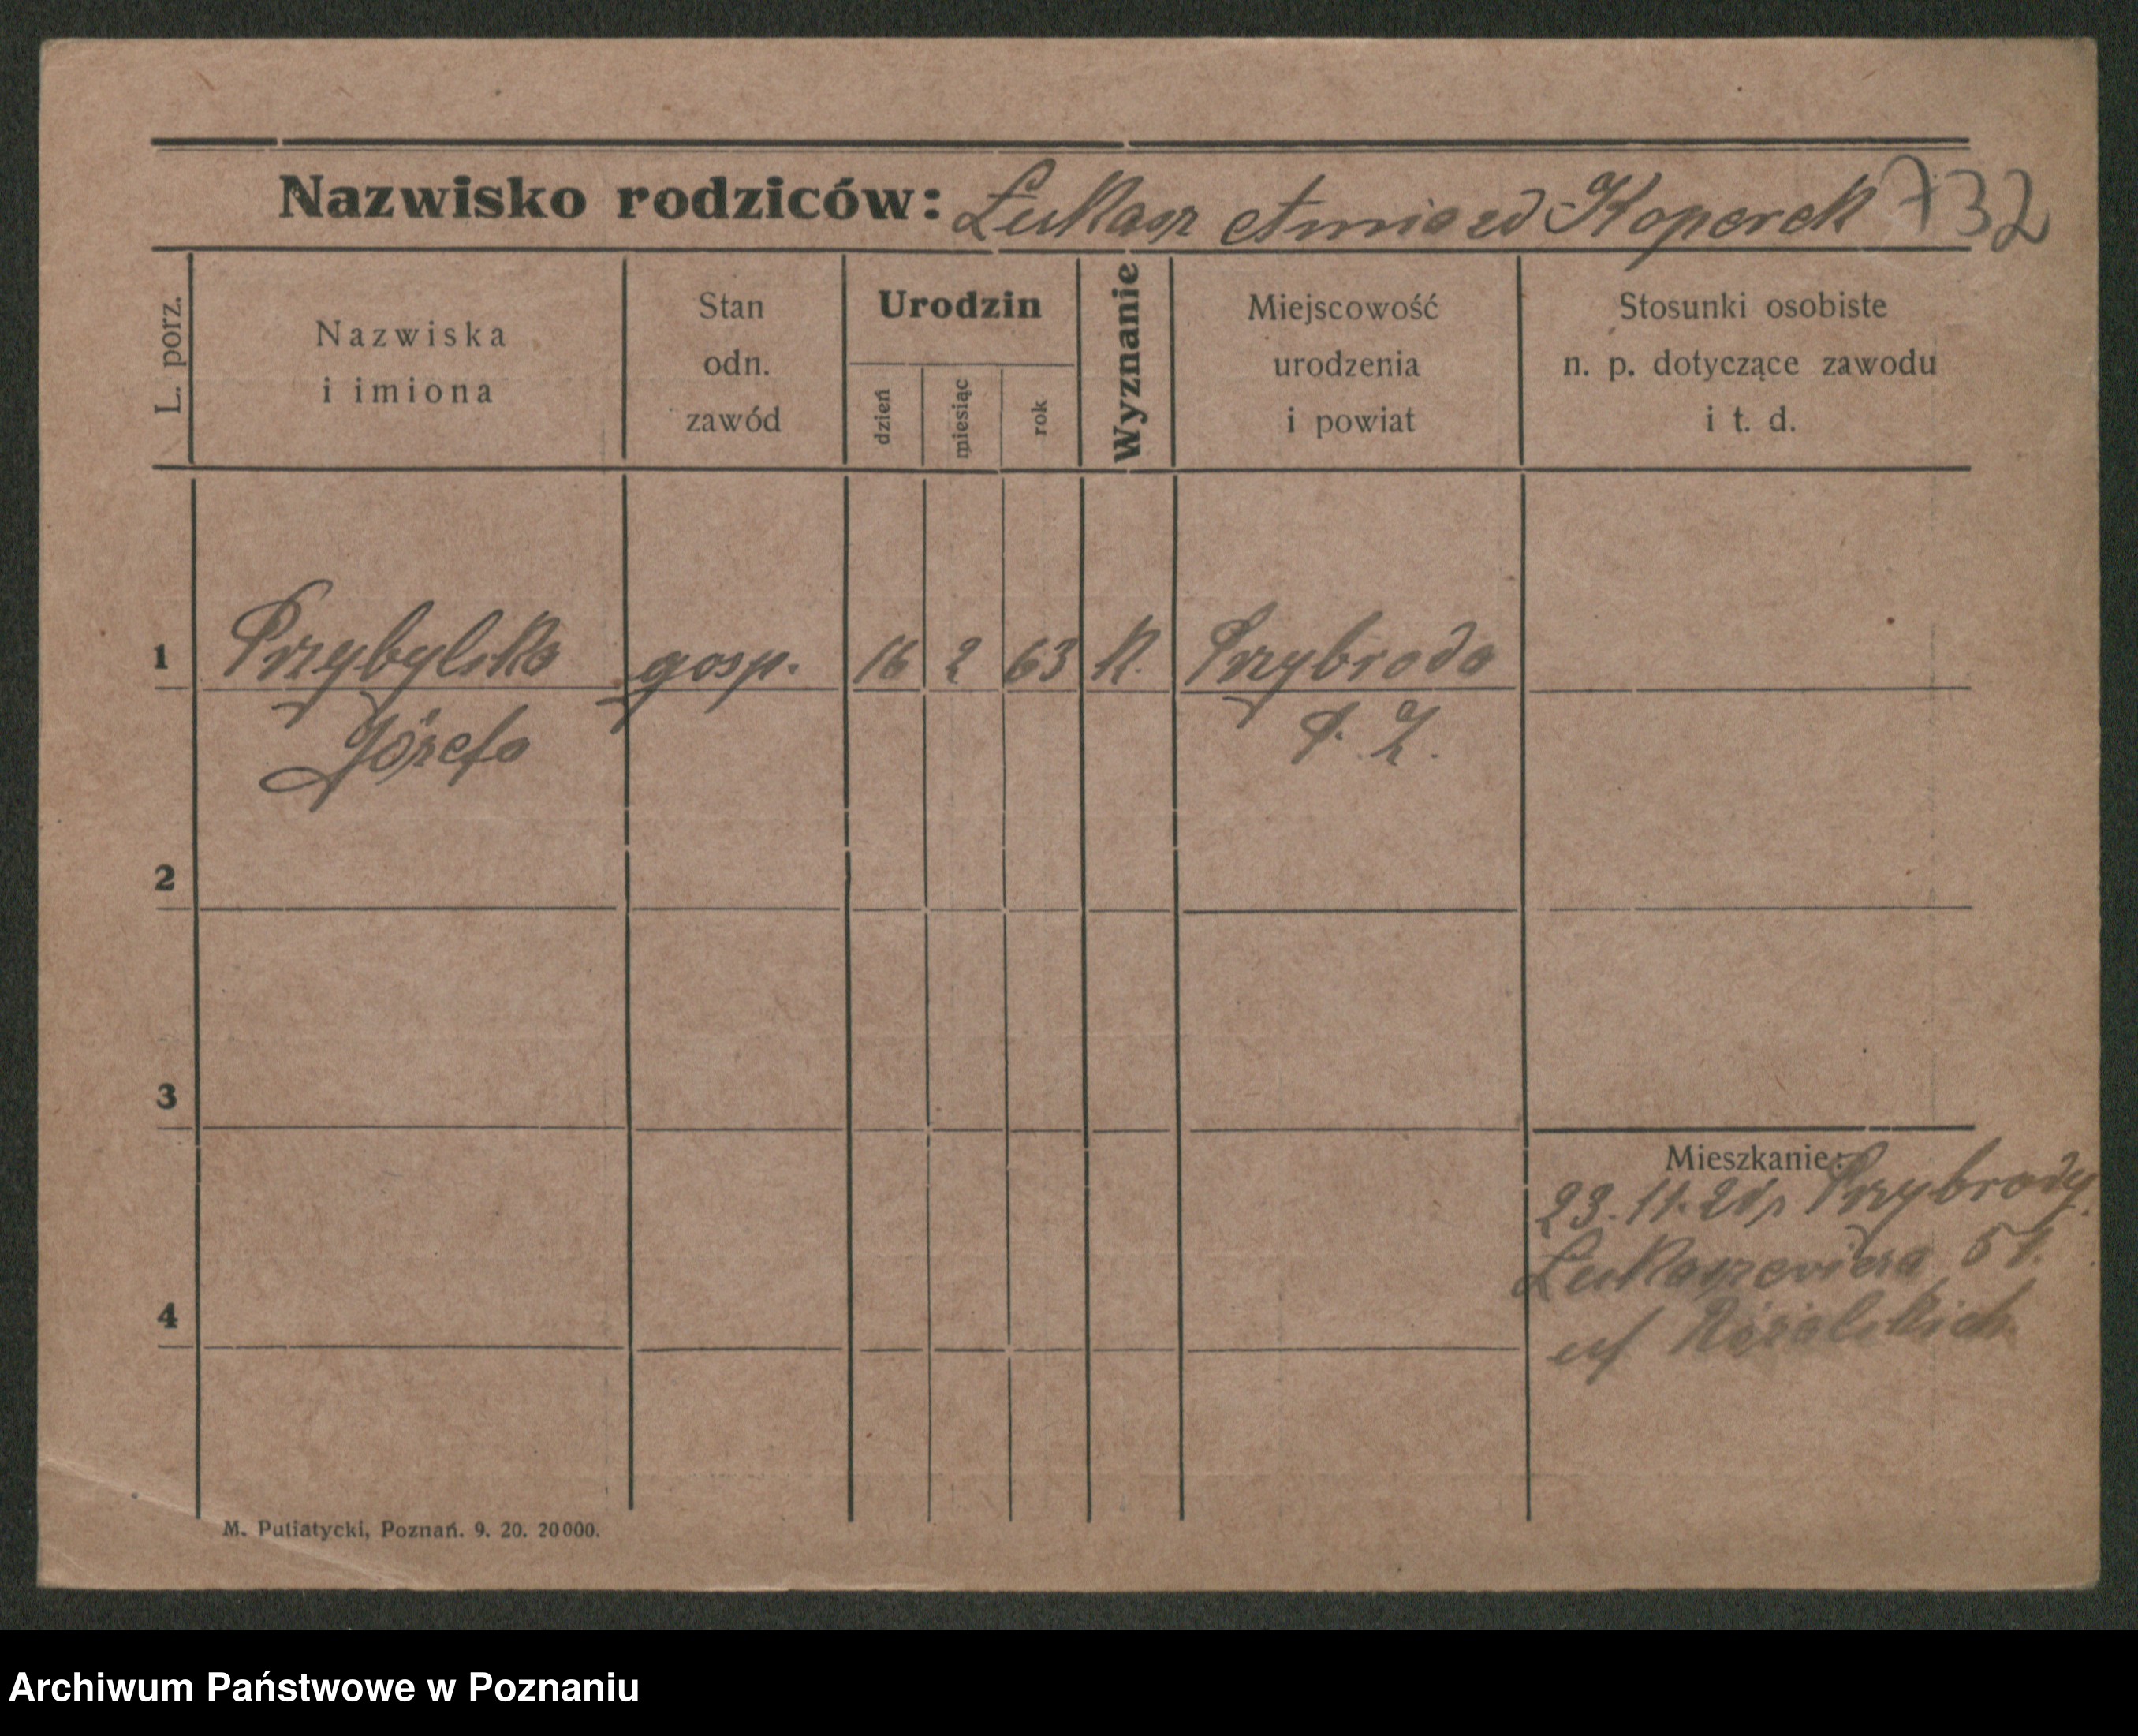 Nazwisko rodziców: Łukasz Koperek 732
L. porz.
Nazwiska
i imiona
Stan
odn.
zawód
Urodzin
dzień
miesiąc
rok
Wyznanie
Miejscowość
urodzenia
i powiat
Stosunki osobiste
n. p. dotyczące zawodu
i t. d.
1 Przybylska gosp. 16 2 63 k. Przybroda
Józefa P. Z.
2
3
Mieszkanie:
23.11.21 z Przybrody.
Łukaszewicza 51.
4
M. Putiatycki, Poznań. 9. 20. 20000.
Archiwum Państwowe w Poznaniu